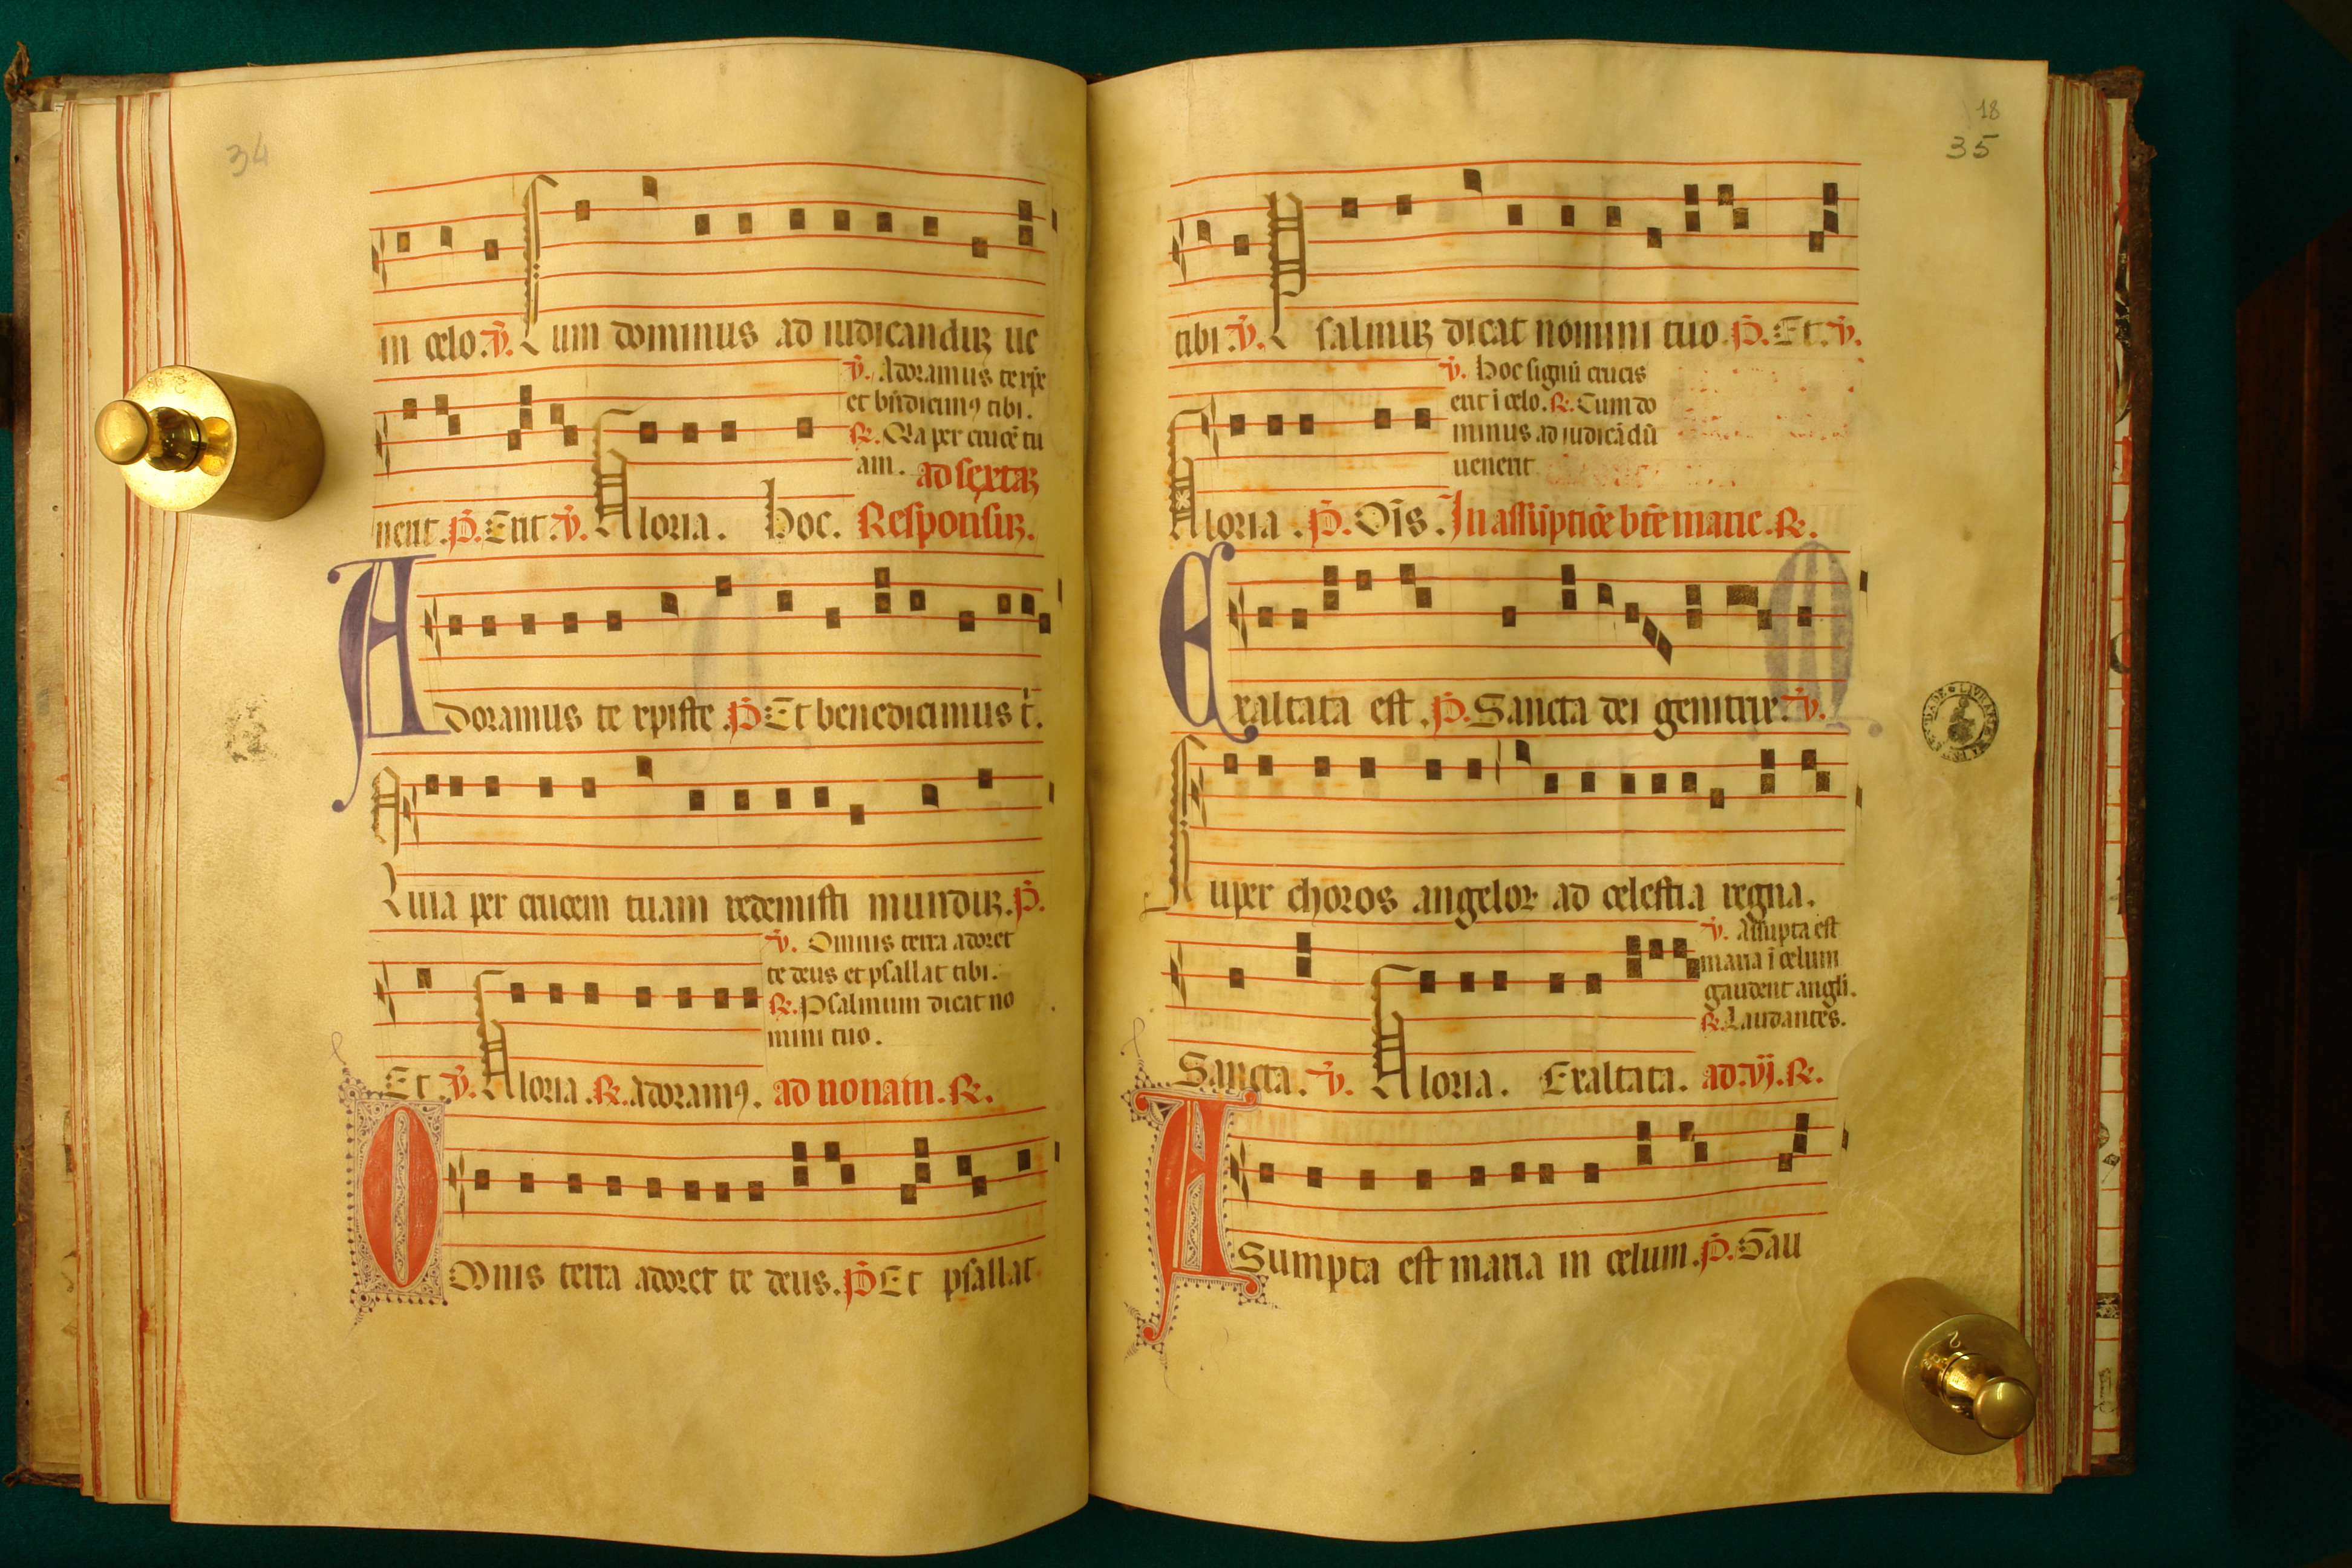 34
in celo. v̄. Cum dominus ad iudicanduꝫ ue
v̄. Adoramus te xp̄e
et bn̄dicimꝰ tibi.
℟. Q̇a per crucē tu
am. ad sextaꝫ
nerit. p̄. Erit. v̄. Gloria. Hoc. Responsuꝫ.
Adoramus te xpiste. p̄. Et benedicimus t̄.
Quia per crucem tuam redemisti munduꝫ. p̄.
v̄. Omnis terra adoret
te deus et psallat tibi.
℟. Psalmum dicat no
mini tuo.
Et. v̄. Gloria. ℟. Adoramꝰ. ad nonam. ℟.
Omnis terra adoret te deus. p̄. Et psallat
18
35
tibi. v̄. Psalmuꝫ dicat nomini tuo. p̄. Et. v̄.
v̄. Hoc signū crucis
erit i celo. ℟. Cum do
minus ad iudicādū
uenerit
Gloria. p̄. Om̄s. In assūptiōe btē marie. ℟.
Exaltata est. p̄. Sancta dei genitrix. v̄.
Super choros angeloꝝ ad celestia regna.
v̄. Assūpta est
maria ī celum
gaudent angli.
℟. Laudantes.
Sancta. v̄. Gloria. Exaltata. ad. vj. ℟.
ASumpta est maria in celum. p̄. Gau